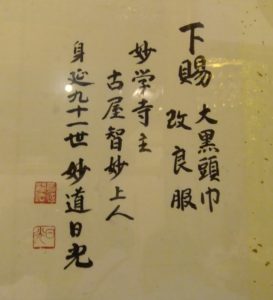 下賜
大黒頭巾
改良服
妙学寺主
古屋智妙上人
身延九十一世 妙道日光